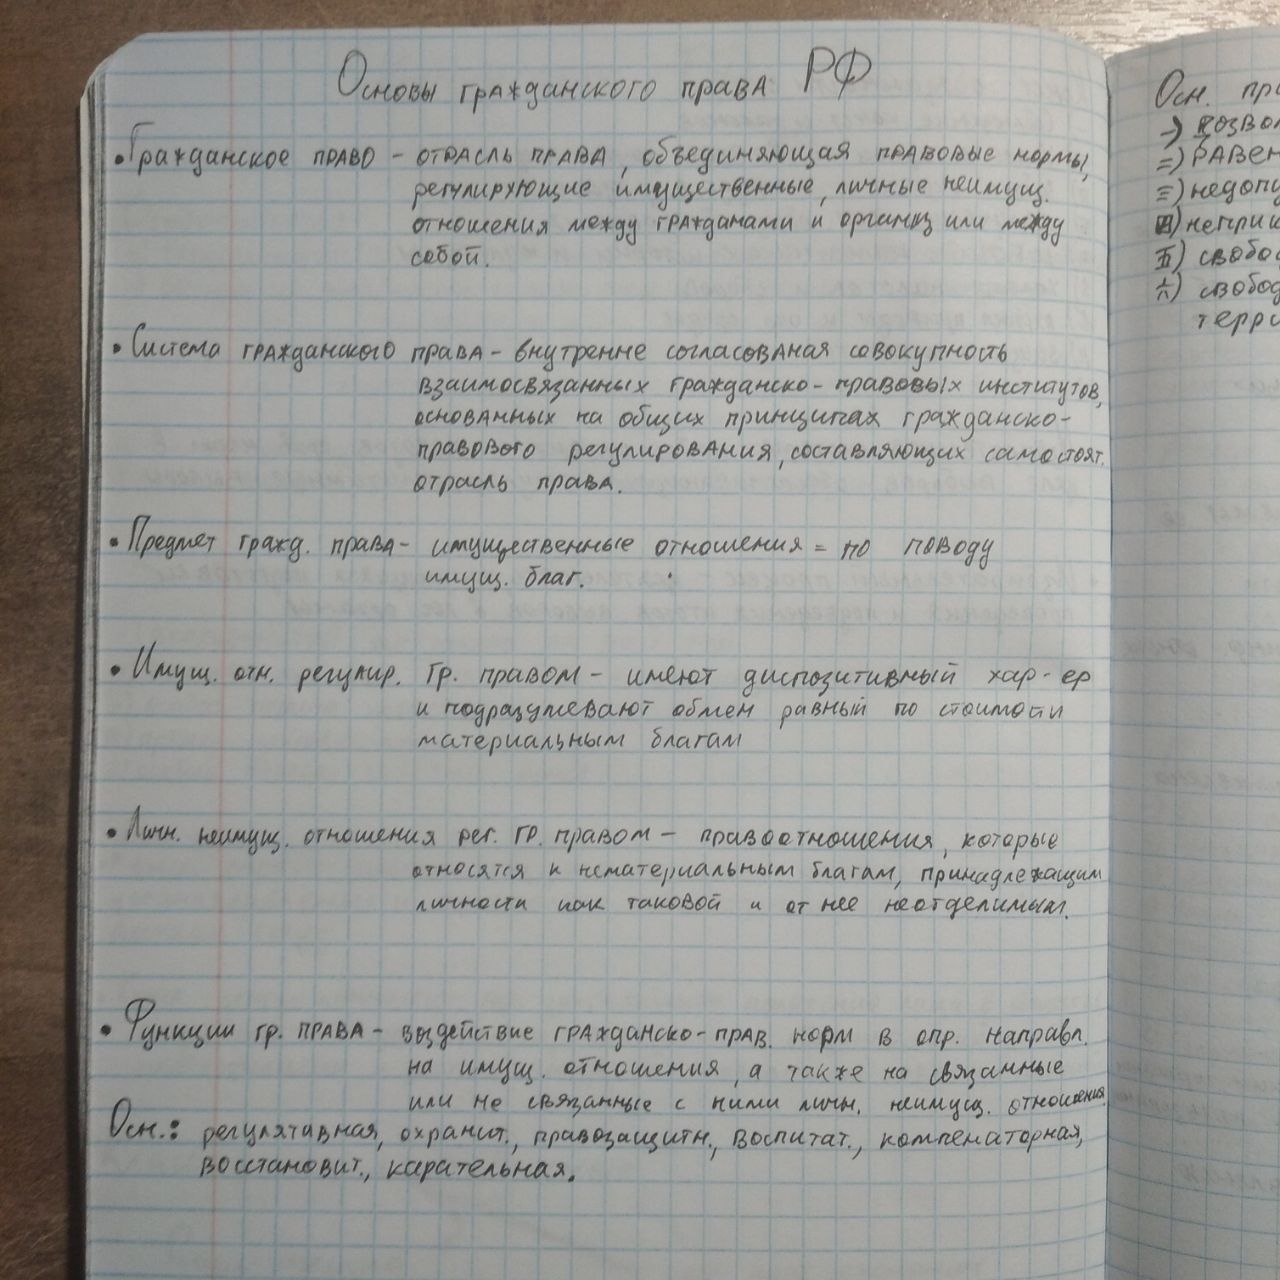 Основы гражданского права РФ
• Гражданское право – отрасль права, объединяющая правовые нормы,
регулирующие имущественные, личные неимущ.
отношения между гражданами и организ или между
собой.
• Система гражданского права – внутренне согласованая совокупность
взаимосвязанных гражданско-правовых институтов,
основанных на общих принципах гражданско-
правового регулирования, составляющих самостоят.
отрасль права.
• Предмет гражд. права – имущественные отношения = по поводу
имущ. благ.
• Имущ. отн. регулир. гр. правом – имеют диспозитивный хар-ер
и подразумевают обмен равный по стоимости
материальным благам
• Личн. неимущ. отношения рег. гр. правом – правоотношения, которые
относятся к нематериальным благам, принадлежащим
личности как таковой и от нее неотделимым.
• Функции гр. права – воздействие гражданско-прав. норм в опр. направл.
на имущ. отношения, а также на связанные
или не связанные с ними личн. неимущ. отношения.
Осн.: регулятивная, охранит., правозащитн., воспитат., компенаторная,
восстановит., карательная.
Осн. при
一) дозвол
二) равен
三) недопу
四) неприк
五) свобо
六) свобод
терри